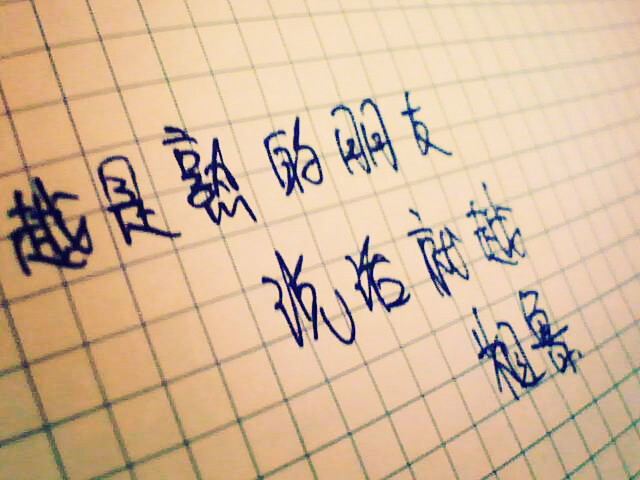 越是熟的朋友
说话就越
粗鲁